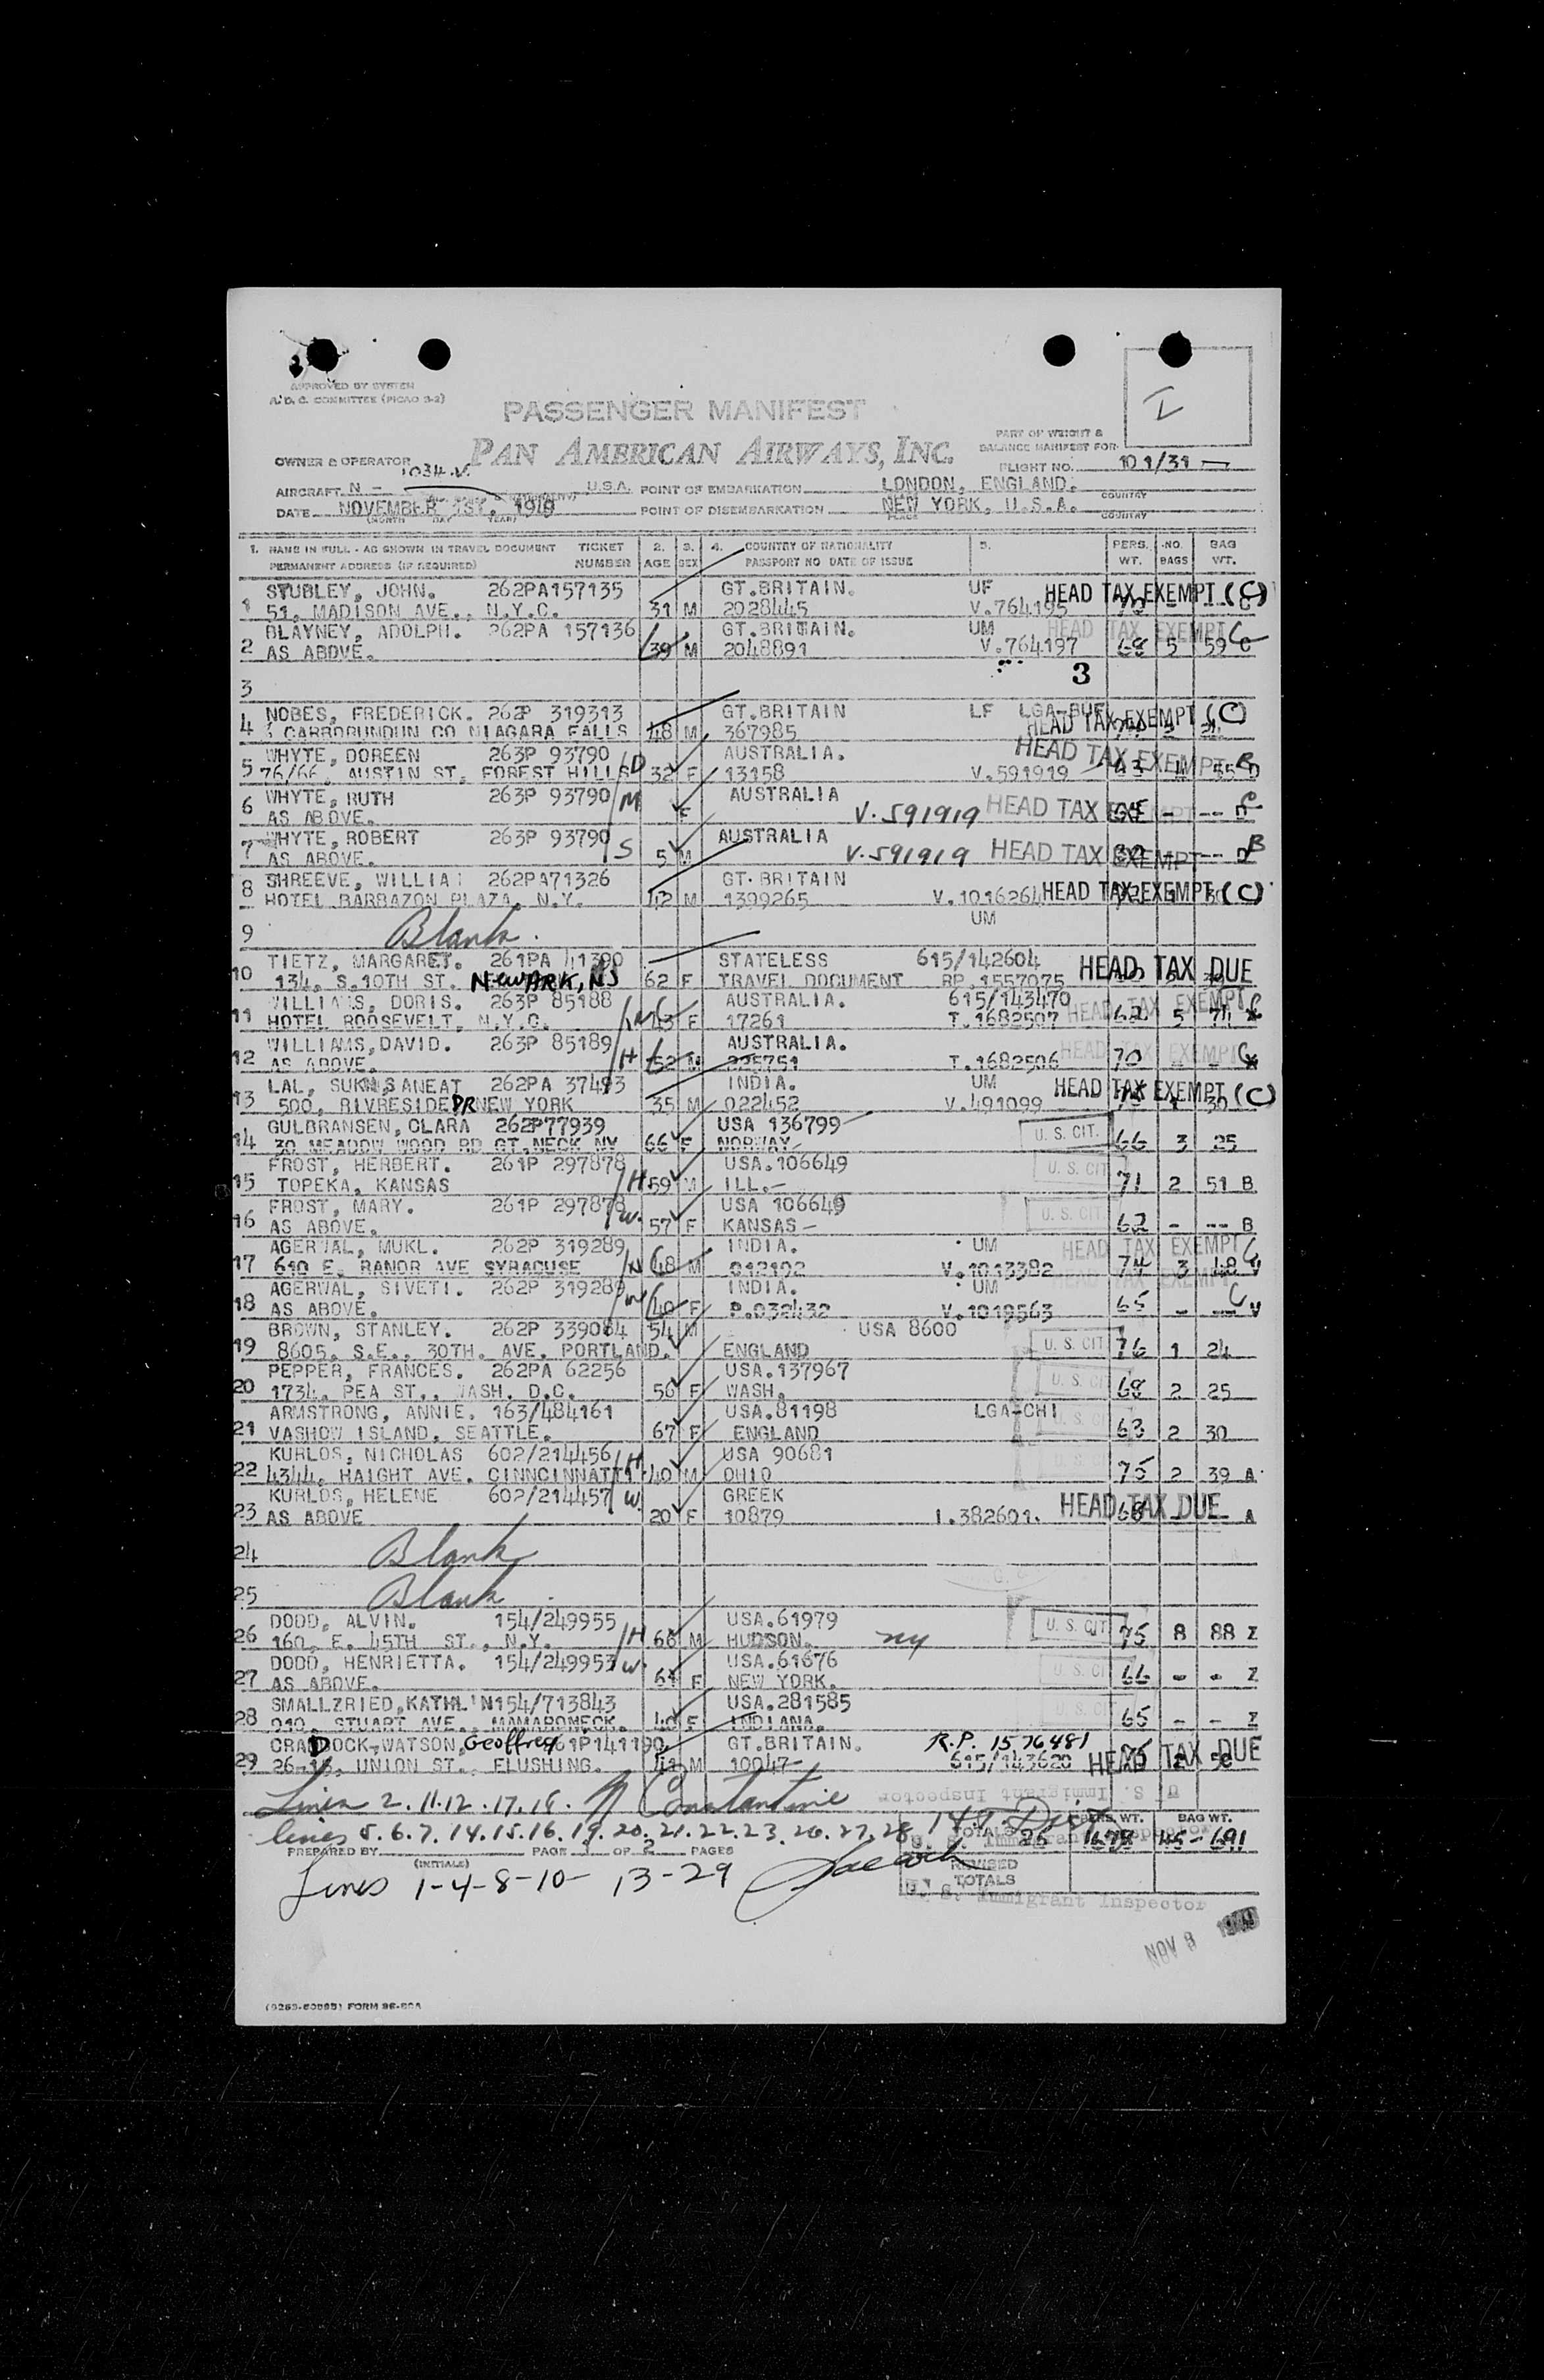 APPROVED BY SYSTEM
A.D.C. COMMITTEE (PICAO 3-2)
PASSENGER MANIFEST
PAN AMERICAN AIRWAYS, INC.
I
PART OF WEIGHT &
BALANCE MANIFEST FOR
OWNER & OPERATOR
FLIGHT NO. 101/31
AIRCRAFT N - 1034 V U.S.A. POINT OF EMBARKATION LONDON, ENGLAND. COUNTRY
DATE NOVEMBER 1ST, 1949 POINT OF DISEMBARKATION NEW YORK, U.S.A.
(MONTH DAY YEAR) PLACE COUNTRY
1. NAME IN FULL - AS SHOWN IN TRAVEL DOCUMENT TICKET 2. 3. 4. COUNTRY OF NATIONALITY 5. PERS. NO. BAG
PERMANENT ADDRESS (IF REQUIRED) NUMBER AGE SEX PASSPORT NO DATE OF ISSUE WT. BAGS WT.
STUBLEY, JOHN. 262PA157135 GT.BRITAIN. UF HEAD TAX EXEMPT (C)
1 51, MADISON AVE., N.Y.C. 31 M 2028445 V.764195
BLAYNEY, ADOLPH. 262PA 157136 GT.BRITAIN. UM HEAD TAX EXEMPT C
2 AS ABOVE. 39 M 2048891 V.764197 68 5 59 C
3 3
NOBES, FREDERICK. 262P 319313 GT.BRITAIN LF LGA-BUF
4 CARBORUNDUN CO NIAGARA FALLS 48 M 367985 HEAD TAX EXEMPT (C)
WHYTE, DOREEN 263P 93790 AUSTRALIA. HEAD TAX EXEMPT B
5 76/66, AUSTIN ST. FOREST HILLS /D 32 F 13158 V.591919 4 55 D
WHYTE, RUTH 263P 93790 /M AUSTRALIA
6 AS ABOVE. F V.591919 HEAD TAX EXEMPT - -- D
WHYTE, ROBERT 263P 93790 AUSTRALIA
7 AS ABOVE. /S 5 M V.591919 HEAD TAX EXEMPT -- D B
SHREEVE, WILLIA 262PA71326 GT.BRITAIN
8 HOTEL BARBAZON PLAZA, N.Y. 42 M 1399265 V.1016264 HEAD TAX EXEMPT (C)
UM
9 Blank.
TIETZ, MARGARET. 261PA 41390 STATELESS 615/142604
10 134, S.10TH ST. NEWARK, NJ 62 F TRAVEL DOCUMENT RP.1557075 HEAD TAX DUE
WILLIAMS, DORIS. 263P 85188 AUSTRALIA. 615/143470
11 HOTEL ROOSEVELT, N.Y.C. /W 43 F 17261 T.1682507 HEAD TAX EXEMPT C 62 5 74
WILLIAMS, DAVID. 263P 85189 AUSTRALIA.
12 AS ABOVE. /H 52 M 225751 T.1682506 HEAD TAX EXEMPT C 70 - -
LAL, SUKH,SANEAT 262PA 37493 INDIA. UM
13 500, RIVRESIDE DR NEW YORK 35 M 022452 V.491099 HEAD TAX EXEMPT (C) 1 30
GULBRANSEN, CLARA 262P77939 USA 136799
14 30 MEADOW WOOD RD GT.NECK NY 66 F NORWAY U. S. CIT. 66 3 25
FROST, HERBERT. 261P 297878 USA.106649
15 TOPEKA, KANSAS /H 59 M ILL. U. S. CIT 71 2 51 B
FROST, MARY. 261P 297878 USA 106649
16 AS ABOVE. /W. 57 F KANSAS U. S. CIT. 62 - -- B
AGERWAL, MUKL. 262P 319289 INDIA. UM
17 610 E. RANOR AVE SYRACUSE 48 M 012102 V.1013382 HEAD TAX EXEMPT C 74 3 48 V
AGERWAL, SIVETI. 262P 319289 INDIA. UM
18 AS ABOVE. /W 40 F P.032432 V.1019563 HEAD TAX EXEMPT C 65 - -- V
BROWN, STANLEY. 262P 339084 54 M USA 8600
19 8605, S.E., 30TH. AVE. PORTLAND. ENGLAND U. S. CIT 76 1 24
PEPPER, FRANCES. 262PA 62256 USA.137967
20 1734, PEA ST., WASH. D.C. 56 F WASH. U. S. CI 68 2 25
ARMSTRONG, ANNIE. 163/484161 USA.81198 LGA-CHI
21 VASHOW ISLAND, SEATTLE. 67 F ENGLAND 63 2 30
KURLOS, NICHOLAS 602/214456 USA 90681
22 4344, HAIGHT AVE. CINNCINNATTI /H 40 M OHIO 75 2 39 A
KURLOS, HELENE 602/214457 GREEK
23 AS ABOVE /W. 20 F 10879 I.382601. HEAD TAX DUE 68 A
24 Blank
25 Blank
DODD, ALVIN. 154/249955 USA.61979
26 160, E. 45TH ST., N.Y. /H 66 M HUDSON. NY U. S. CIT 75 8 88 Z
DODD, HENRIETTA. 154/249953 USA.61676
27 AS ABOVE. /W. 61 F NEW YORK. U. S. CI 66 - - Z
SMALLZRIED,KATHL'N154/713843 USA.281585
28 910, STUART AVE., MAMARONECK. 40 F INDIANA. 65 - - Z
CRADDOCK-WATSON, Geoffrey 61P141190 GT.BRITAIN. R.P. 1576481
29 UNION ST., FLUSHING. 41 M 10047 615/143620 HEAD TAX DUE
U. S. Immigrant Inspector
Lines 2.11.12.17.18. Constantine
lines 5.6.7.14.15.16.19.20.21.22.23.26.27.28
TOTALS 25 1678 45 - 691 PERS. WT. BAG WT.
U. S. Immigrant Inspector
PREPARED BY (INITIALS) PAGE 1 OF 2 PAGES
Lines 1-4-8-10-13-29
REVISED TOTALS
U. S. Immigrant Inspector
NOV 8 1949
(9253-50595) FORM 96-50A